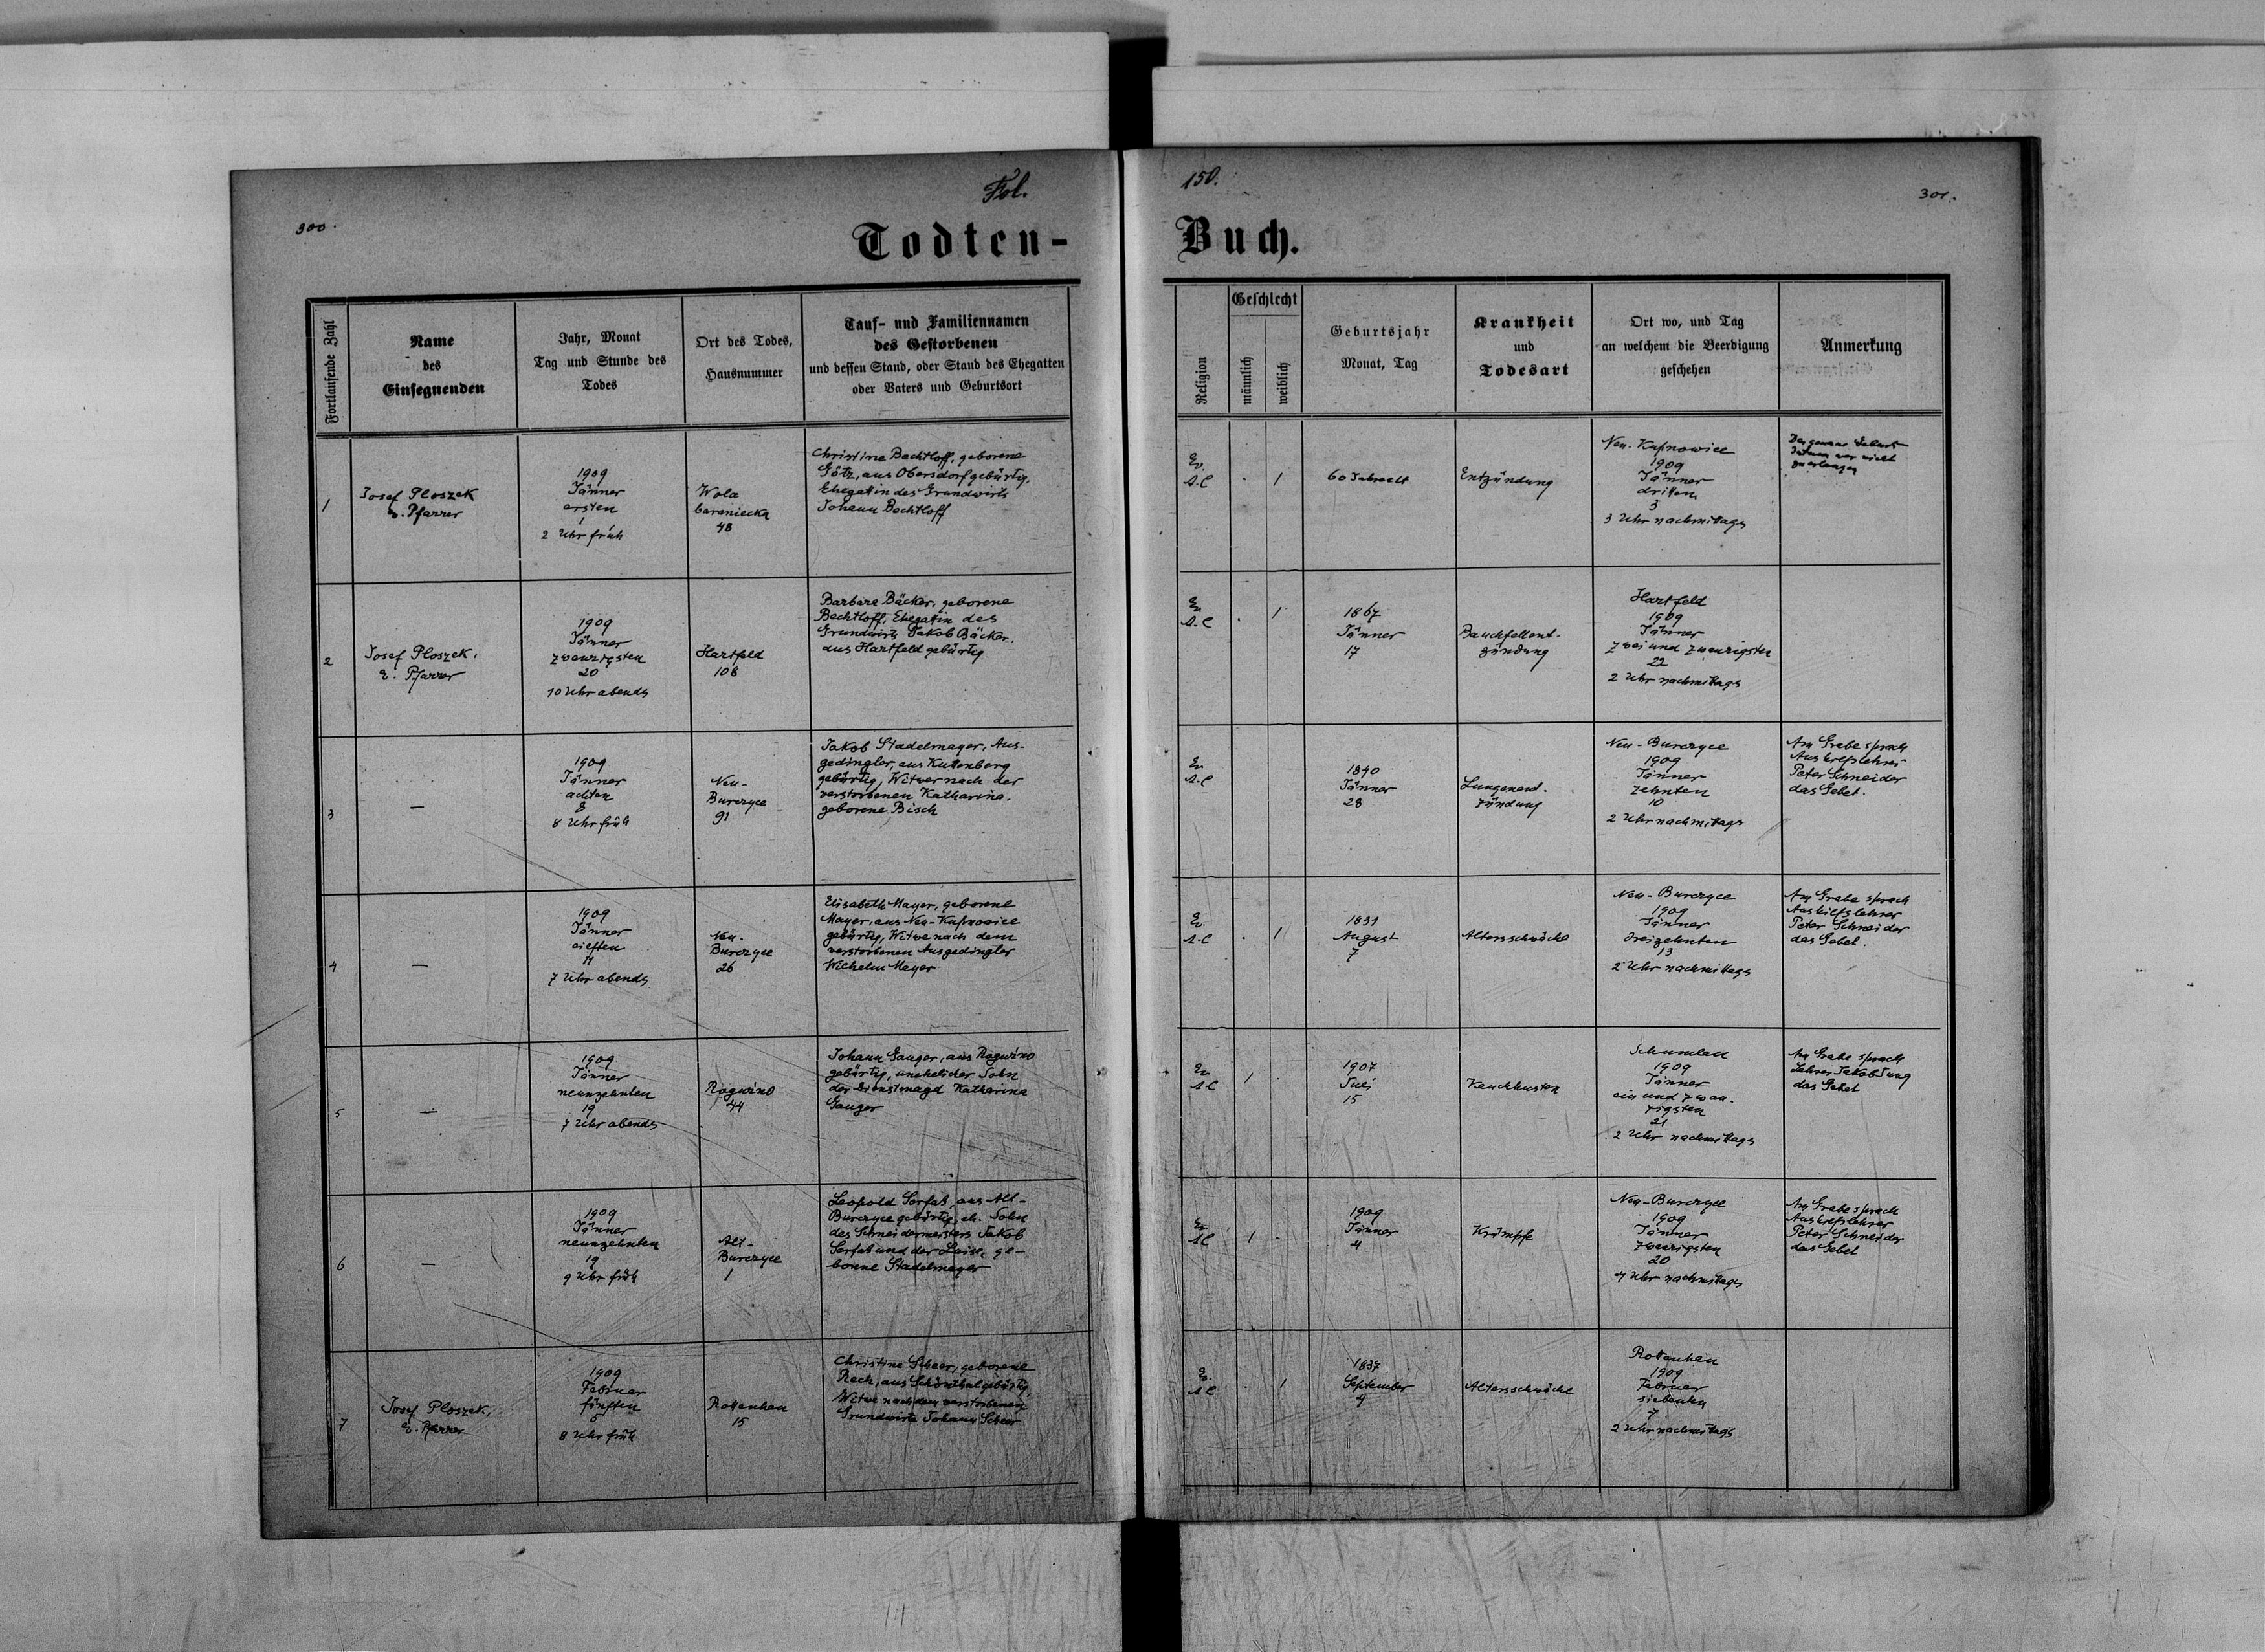 Fol.
150.
300.
301.
Todten-
Buch.
Fortlaufende Zahl
Name
des
Einsegnenden
Jahr, Monat
Tag und Stunde des
Todes
Ort des Todes,
Hausnummer
Tauf- und Familiennamen
des Gestorbenen
und dessen Stand, oder Stand des Ehegatten
oder Vaters und Geburtsort
Religion
Geschlecht
männlich
weiblich
Geburtsjahr
Monat, Tag
Krankheit
und
Todesart
Ort wo, und Tag
an welchem die Beerdigung
geschehen
Anmerkung
1
Josef Ploszek
e. Pfarrer
1909
Jänner
ersten
1
2 Uhr früh
Wola
baraniecka
48
Christine Bechtloff, geborene
Götz, aus Obersdorf gebürtig,
Ehegattin des Grundwirts
Johann Bechtloff
Ev.
A.C
.
1
60 Jahre alt
Entzündung
Neu-Kupnowice
1909
Jänner
dritten
3
3 Uhr nachmittags
Der genaue Geburts
datum war nicht
zu erlangen
2
Josef Ploszek,
e. Pfarrer
1909
Jänner
zwanzigsten
20
10 Uhr abends
Hartfeld
108
Barbara Bäcker, geborene
Bechtloff, Ehegattin des
Grundwirts Jakob Bäcker,
aus Hartfeld gebürtig
Ev
A.C
.
1
1867
Jänner
17
Bauchfellent-
zündung
Hartfeld
1909
Jänner
zwei und zwanzigsten
22
2 Uhr nachmittags
3
—
1909
Jänner
achten
8
8 Uhr früh
Neu-
Burczyce
91
Jakob Stadelmayer, Aus-
gedingler, aus Kuttenberg
gebürtig, Witwer nach der
verstorbenen Katharina,
geborene Bisch
Ev
A.C
1840
Jänner
28
Lungenent-
zündung
Neu-Burczyce
1909
Jänner
zehnten
10
2 Uhr nachmittags
Am Grabe sprach
Aushilfslehrer
Peter Schneider
das Gebet.
4
—
1909
Jänner
eilften
11
7 Uhr abends
Neu-
Burczyce
26
Elisabeth Mayer, geborene
Mayer, aus Neu-Kupnowice
gebürtig, Witwe nach dem
verstorbenen Ausgedingler
Wilhelm Mayer
Ev.
A.C
.
1
1831
August
7
Altersschwäche
Neu-Burczyce
1909
Jänner
dreizehnten
13
2 Uhr nachmittags
Am Grabe sprach
Aushilfslehrer
Peter Schneider
das Gebet.
5
—
1909
Jänner
neunzehnten
19
7 Uhr abends
Roguźno
44
Johann Gauger, aus Roguźno
gebürtig, unehelicher Sohn
der Dienstmagd Katharina
Gauger
Ev
A.C
1
.
1907
Juli
15
Keuchhusten
Schumlau
1909
Jänner
ein und zwan-
zigsten
21
2 Uhr nachmittags
Am Grabe sprach
Lehrer Jakob Jung
das Gebet
6
—
1909
Jänner
neunzehnten
19
9 Uhr früh
Alt-
Burczyce
1
Leopold Serfas, aus Alt-
Burczyce gebürtig, eh. Sohn
des Schneidermeisters Jakob
Serfas und der Luise, ge-
borene Stadelmayer
Ev
A.C
1
.
1909
Jänner
4
Krämpfe
Neu-Burczyce
1909
Jänner
zwanzigsten
20
4 Uhr nachmittags
Am Grabe sprach
Aushilfslehrer
Peter Schneider
das Gebet
7
Josef Ploszek,
e. Pfarrer
1909
Februar
fünften
5
8 Uhr früh
Rottenhan
15
Christine Scheer, geborene
Rech, aus Schönthal gebürtig,
Witwe nach dem verstorbenen
Grundwirte Johann Scheer
Ev.
A.C
.
1
1837
September
4
Altersschwäche
Rottenhan
1909
Februar
siebenten
7
2 Uhr nachmittags